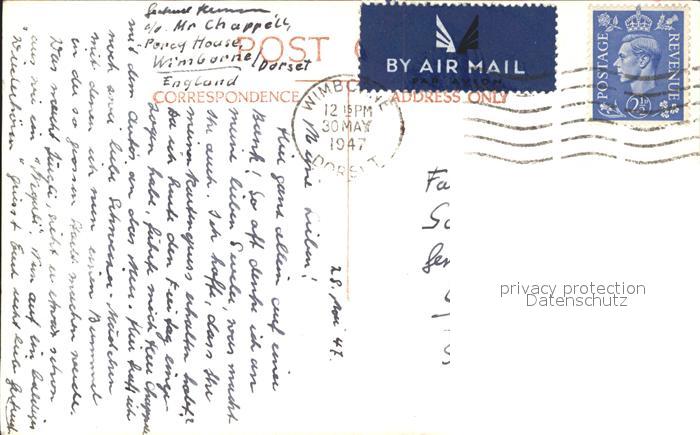 c/o Mr Chappell,
Percy House
Wimborne, Dorset
England
POST C
CORRESPONDENCE
ADDRESS ONLY
BY AIR MAIL
PAR AVION
POSTAGE
REVENUE
2½
WIMBORNE
12 15PM
30 MAY
1947
DORSET
28. Mai 47.
Meine Lieben!
Hier ganz allein auf einer
Bank! So oft denke ich an
meine lieben was macht
Ihr auch. Ich hoffe, dass Ihr
meinen Kartengruss erhalten habt?
Da ich heute den Freitag
habe, führte mich Herr Chappell
mit dem Auto an das Meer. Hier traf ich
noch zwei liebe Schweizer-Mädchen
mit denen ich nun einen Bummel
in der so grossen Stadt machen werde.
Was macht geht er etwas schon
aus wie ein Nun auf ein baldiges
grüsst Euch
Fa
Sc
privacy protection
Datenschutz